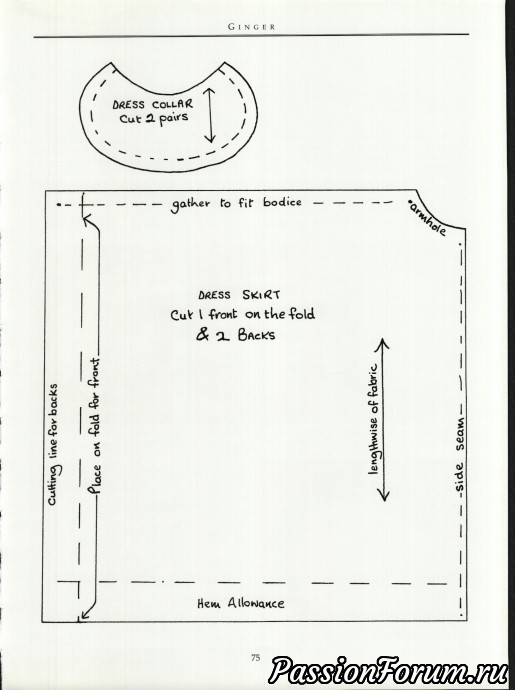 GINGER
DRESS COLLAR
Cut 2 pairs
gather to fit bodice
armhole
DRESS SKIRT
Cut 1 front on the fold
& 2 BACKS
Cutting line for backs
Place on fold for front
lengthwise of fabric
side seam
Hem Allowance
75
PassionForum.ru